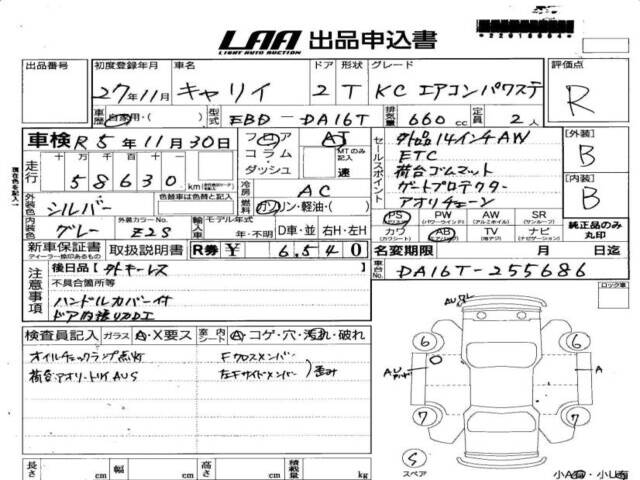 LAA 出品申込書
LIGHT AUTO AUCTION
出品番号 初度登録年月 車名 ドア 形状 グレード 評価点
27年11月 キャリイ 2 T KC エアコンパワステ R
車歴 自家用・( ) 型式 EBD-DA16T 排気量 660 cc 定員 2人
車検 R5年11月30日 フロア AT
コラム・ダッシュ MTのみ記入 速
走行 十万 万 千 百 十
58630 km
冷房 AC
燃料 ガソリン・軽油・( )
外装色 シルバー 色替車は色替と記入
内装色 グレー 外装カラーNo. Z2S 輸入車 モデル年式 年・不明 D車・並 右H・左H
新車保証書 取扱説明書 R券 ¥ 6,540
ディーラー捺印あるもの
セールスポイント
外品14インチAW
ETC
荷台ゴムマット
ゲートプロテクター
アオリチェーン
PS PW AW SR
(パワステ) (パワーウインドウ) (アルミホイル) (サンルーフ)
カワ AB TV ナビ
(カワシート) (エアバック) (純正テレビ) (ナビゲーション)
[外装] B
[内装] B
純正品のみ丸印
名変期限 月 日迄
車台No. DA16T-255686
ロック車
注意事項
後日品 [外キーレス ]
不具合箇所等
ハンドルカバー付
検査員記入 ガラス A・X要ス 室内 シート A・コゲ・穴・汚れ・破れ
オイルチェックランプ点灯 Fクロスメンバー
左Fサイドメンバー 歪み
6 6
A
7 7
S
スペア
長さ cm 幅 cm 高さ cm 積載量 kg
小A有・小U有